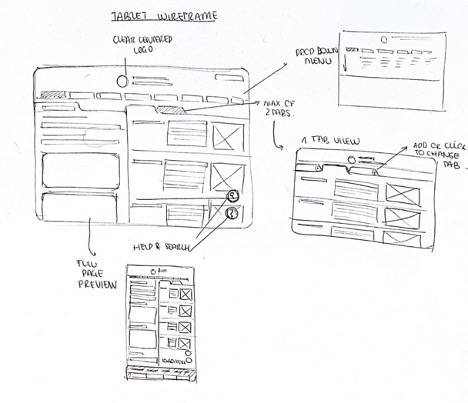 TABLET WIREFRAME
CLEAR CENTERED
LOGO.
DROP DOWN
MENU
MAX OF
2 TABS.
1 TAB VIEW
ADD OR CLICK
TO CHANGE
TAB.
HELP & SEARCH
FULL
PAGE
PREVIEW